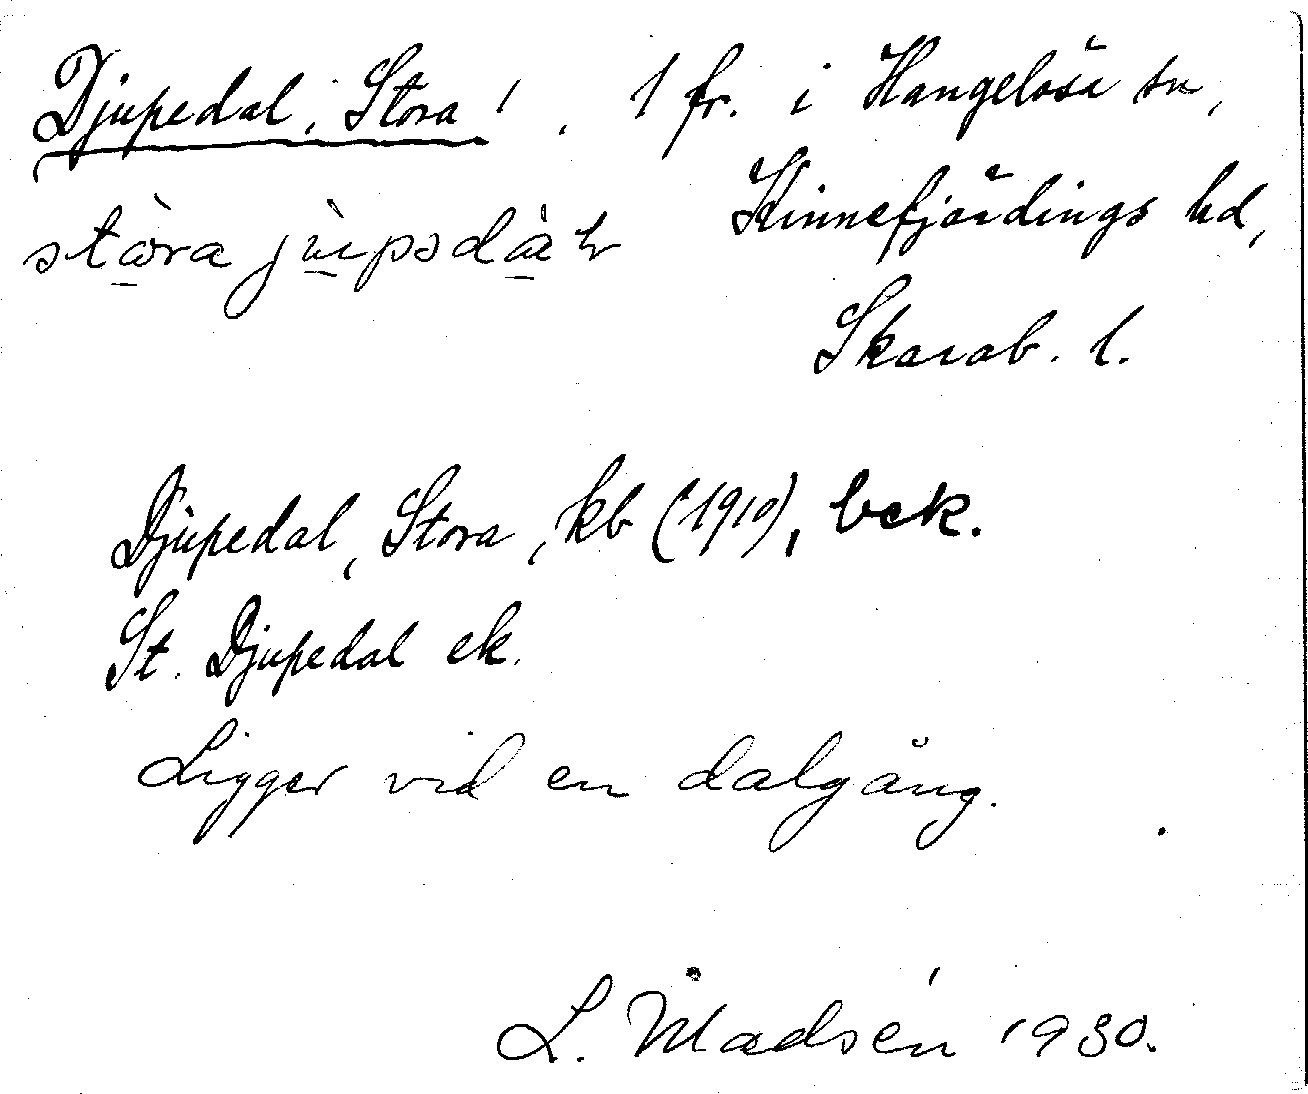 Djupedal, Stora! . 1 fr. i Hangelösa sn,
Kinnefjärdings hd,
stòra jùpədàɫ
Skarab. l.
Djupedal, Stora, kb (1910), bek.
St. Djupedal ek.
Ligger vid en dalgång.
L. Madsén 1930.